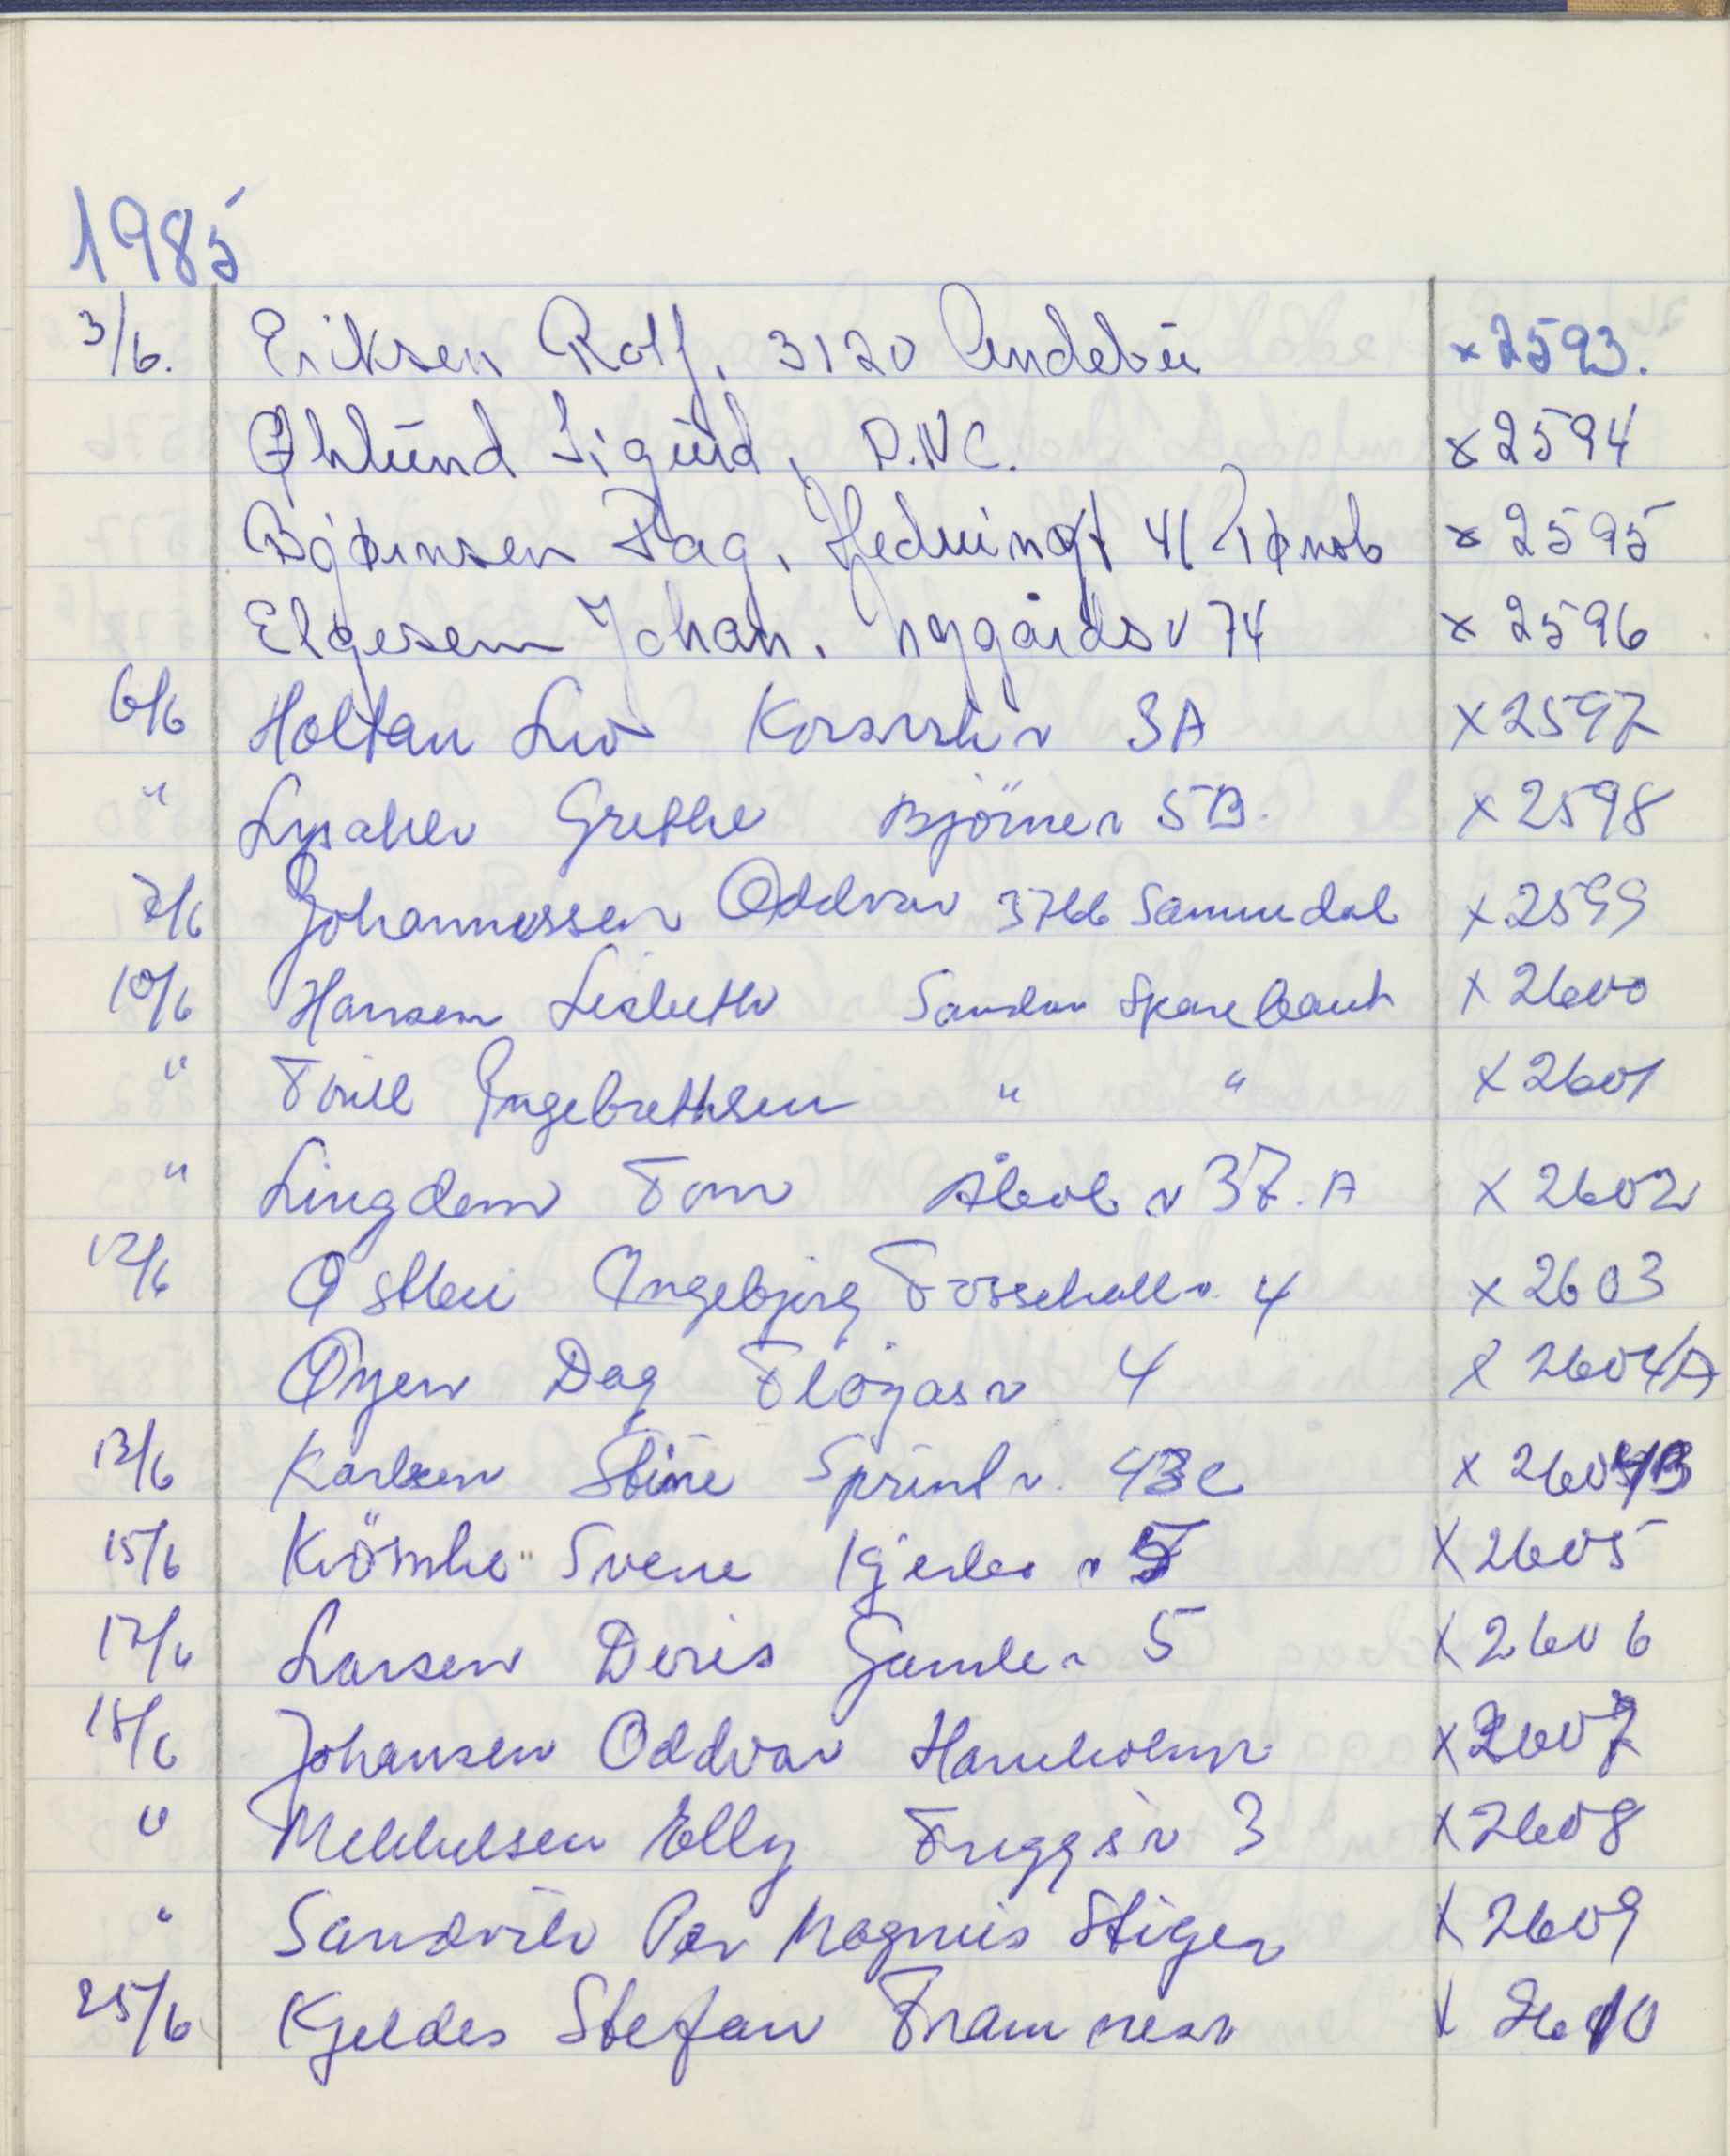 1985
3/6. Eriksen Rolf, 3120 Andebu x 2593.
Øhlund Sigurd, D.N.C. x 2594
Bjørnsen Dag, 41 Tønsb x 2595
Elgesem Johan, Nygårdsv 74 x 2596
6/6 Holtan Liv 3A x 2597
" Lysaker Grethe Bjørnev 5B. x 2598
7/6 Johannessen Oddvar 3766 Sannidal x 2599
10/6 Hansen Lisbeth Sandar Sparebank x 2600
" Toril Ingebrethsen " " x 2601
" Lingdom Tom v 37.A x 2602
12/6 Østbøe Ingebjørg 4 x 2603
Øyen Dag Fløyasv 4 x 2604A
13/6 Karlsen Stine 43c x 2604B
15/6 Sverre v 5 x 2605
17/6 Larsen Doris Gamlev 5 x 2606
18/6 Johansen Oddvar Havneholmv x 2607
" Mikkelsen Elly Friggsv 3 x 2608
" Sandvik Per Magnus Stigev x 2609
25/6 Kjeldes Stefan Framnesv x 2610